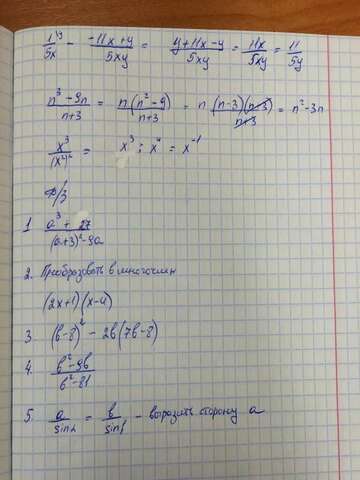 1^y/5x - -11x+y/5xy = y+11x-y/5xy = 11x/5xy = 11/5y
n^3-9n/n+3 = n(n^2-9)/n+3 = n(n-3)(n+3)/n+3 = n^2-3n
x^3/(x^2)^2 = x^3 : x^4 = x^-1
Д/З
1 a^3 + 27/(a+3)^2-9a
2. Преобразовать в многочлен
(2x+1)(x-4)
3 (b-8)^2 - 2b(7b-8)
4. b^2-9b/b^2-81
5. a/sinα = b/sinβ - выразить сторону a